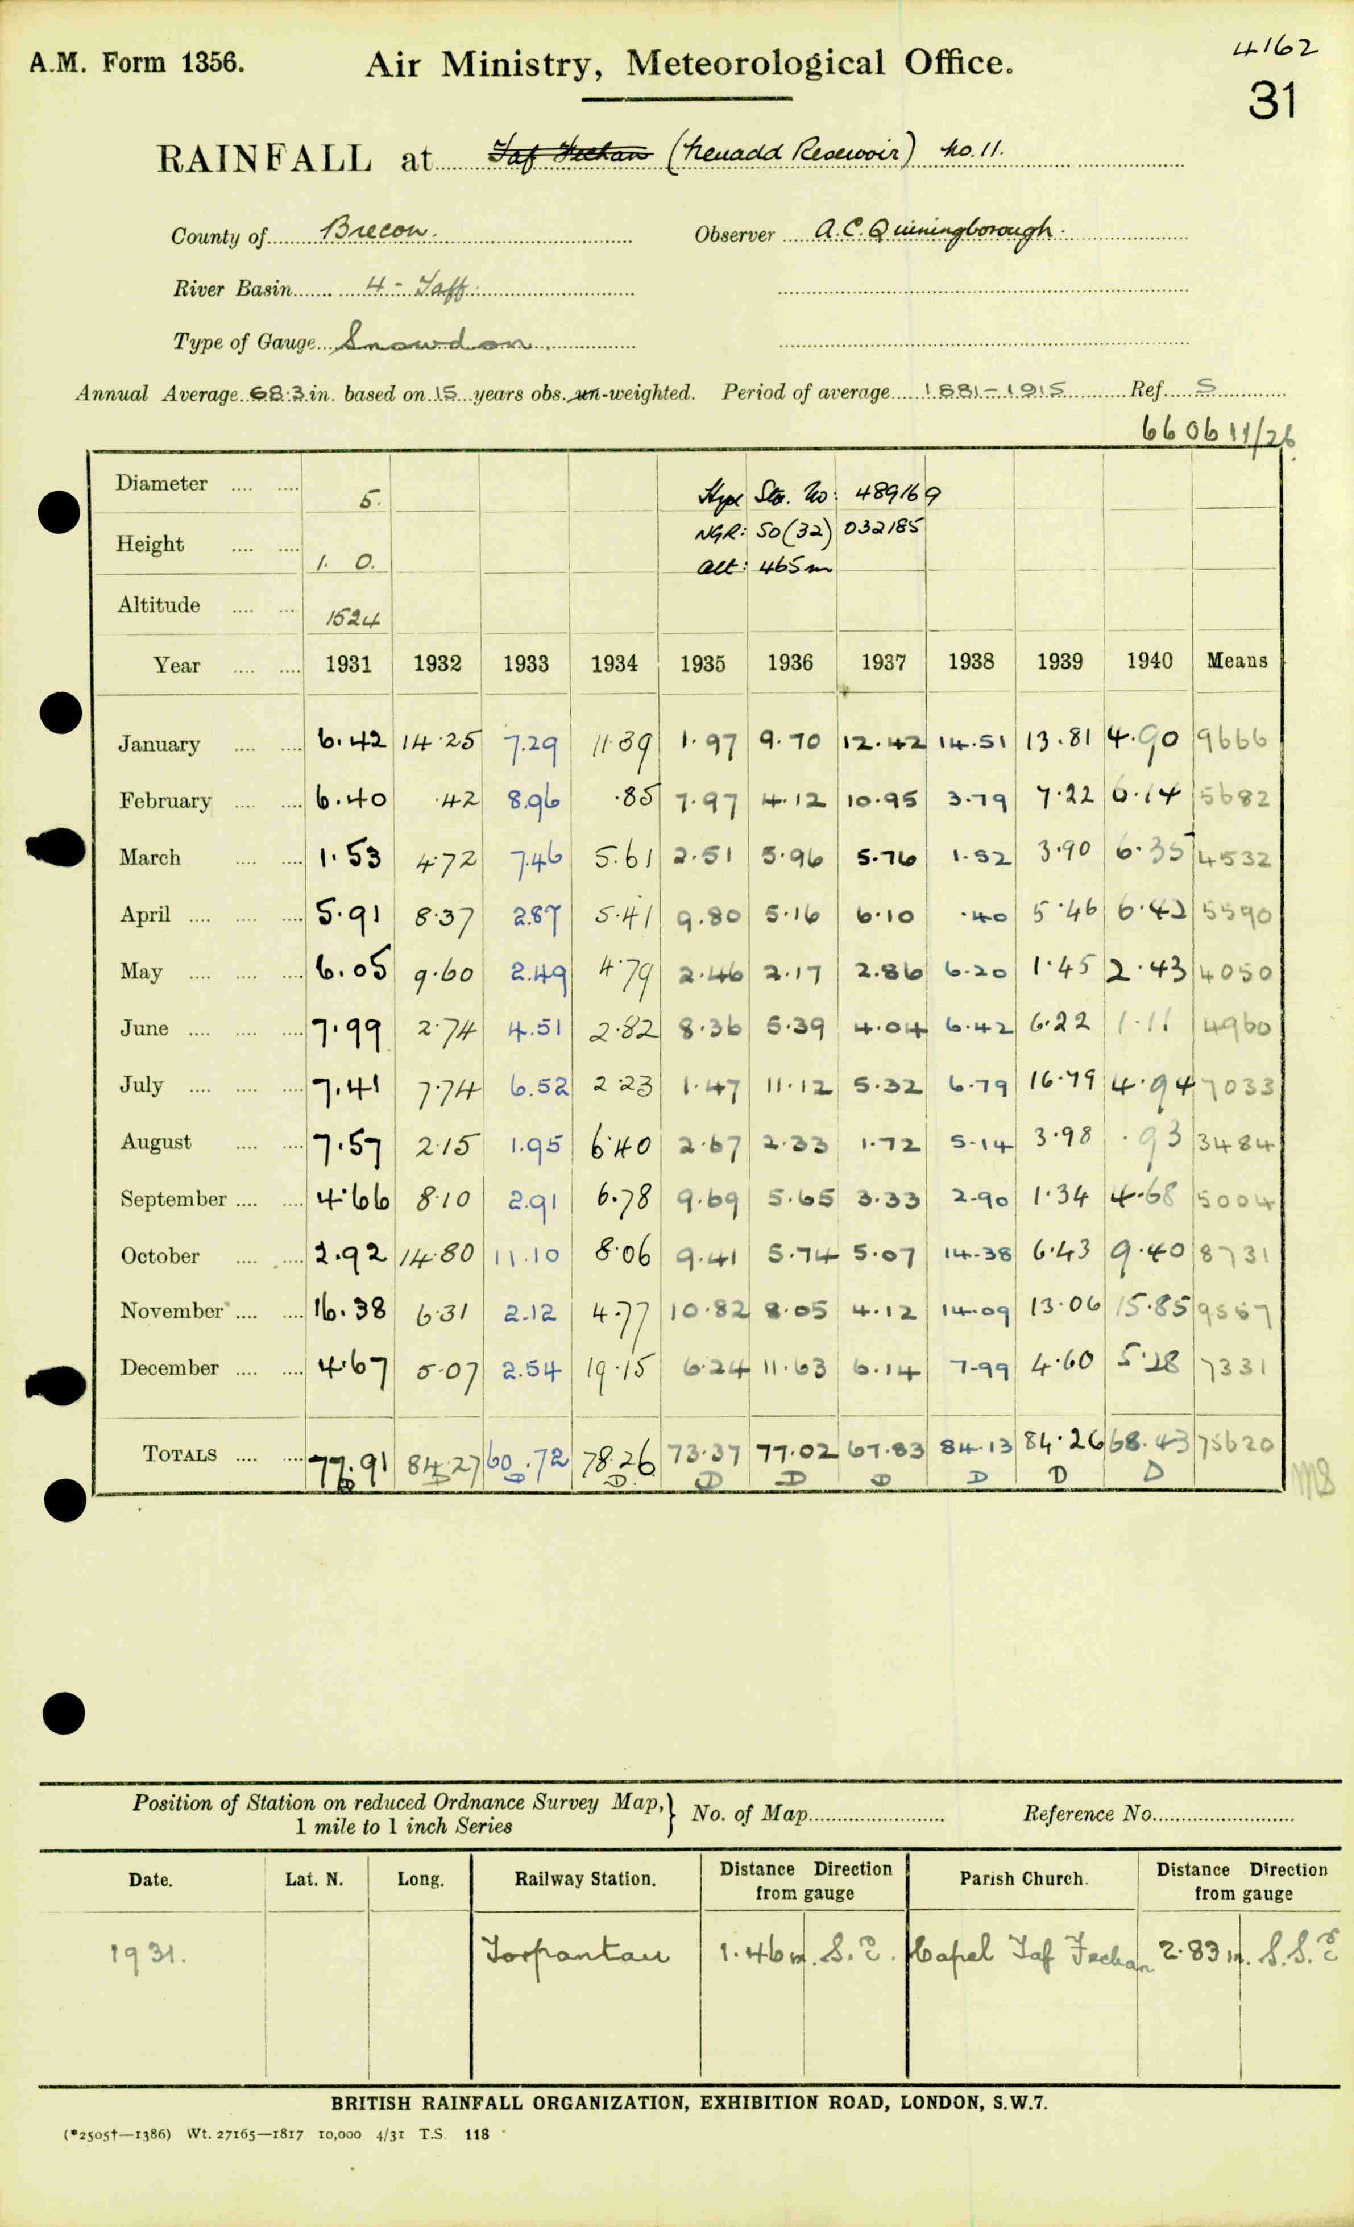 4162
A.M. Form 1356. Air Ministry, Meteorological Office.
31
RAINFALL at Taf Fechan (Neuadd Reservoir) No. 11.
County of Brecon. Observer A.C. Quiningborough.
River Basin 4 - Taff
Type of Gauge Snowdon
Annual Average 68.3 in. based on 15 years obs. un-weighted. Period of average 1881-1915 Ref. S
6606 11/26
Diameter 5. Stn. No: 489169
NGR: SO(32) 032185
Height 1. 0. alt: 465m
Altitude 1524
Year 1931 1932 1933 1934 1935 1936 1937 1938 1939 1940 Means
January 6.42 14.25 7.29 11.39 1.97 9.70 12.42 14.51 13.81 4.90 9666
February 6.40 .42 8.96 .85 7.97 4.12 10.95 3.79 7.22 6.14 5682
March 1.53 4.72 7.46 5.61 2.51 5.96 5.76 1.52 3.90 6.35 4532
April 5.91 8.37 2.87 5.41 9.80 5.16 6.10 .40 5.46 6.42 5590
May 6.05 9.60 2.49 4.79 2.46 2.17 2.86 6.20 1.45 2.43 4050
June 7.99 2.74 4.51 2.82 8.36 5.39 4.04 6.42 6.22 1.11 4960
July 7.41 7.74 6.52 2.23 1.47 11.12 5.32 6.79 16.79 4.94 7033
August 7.57 2.15 1.95 6.40 2.67 2.33 1.72 5.14 3.98 .93 3484
September 4.66 8.10 2.91 6.78 9.69 5.65 3.33 2.90 1.34 4.68 5004
October 2.92 14.80 11.10 8.06 9.41 5.74 5.07 14.38 6.43 9.40 8731
November 16.38 6.31 2.12 4.77 10.82 8.05 4.12 14.09 13.06 15.85 9557
December 4.67 5.07 2.54 19.15 6.24 11.63 6.14 7.99 4.60 5.28 7331
TOTALS 77.91 84.27 60.72 78.26 73.37 77.02 67.83 84.13 84.26 68.43 75620
D D D D D D D D D D
MS
Position of Station on reduced Ordnance Survey Map, 1 mile to 1 inch Series } No. of Map Reference No.
Date. Lat. N. Long. Railway Station. Distance Direction from gauge Parish Church. Distance Direction from gauge
1931. Torpantau 1.46 m. S.E. Capel Taf Fechan 2.83 m. S.S.E
BRITISH RAINFALL ORGANIZATION, EXHIBITION ROAD, LONDON, S.W.7.
(*2505†—1386) Wt. 27165—1817 10,000 4/31 T.S. 118